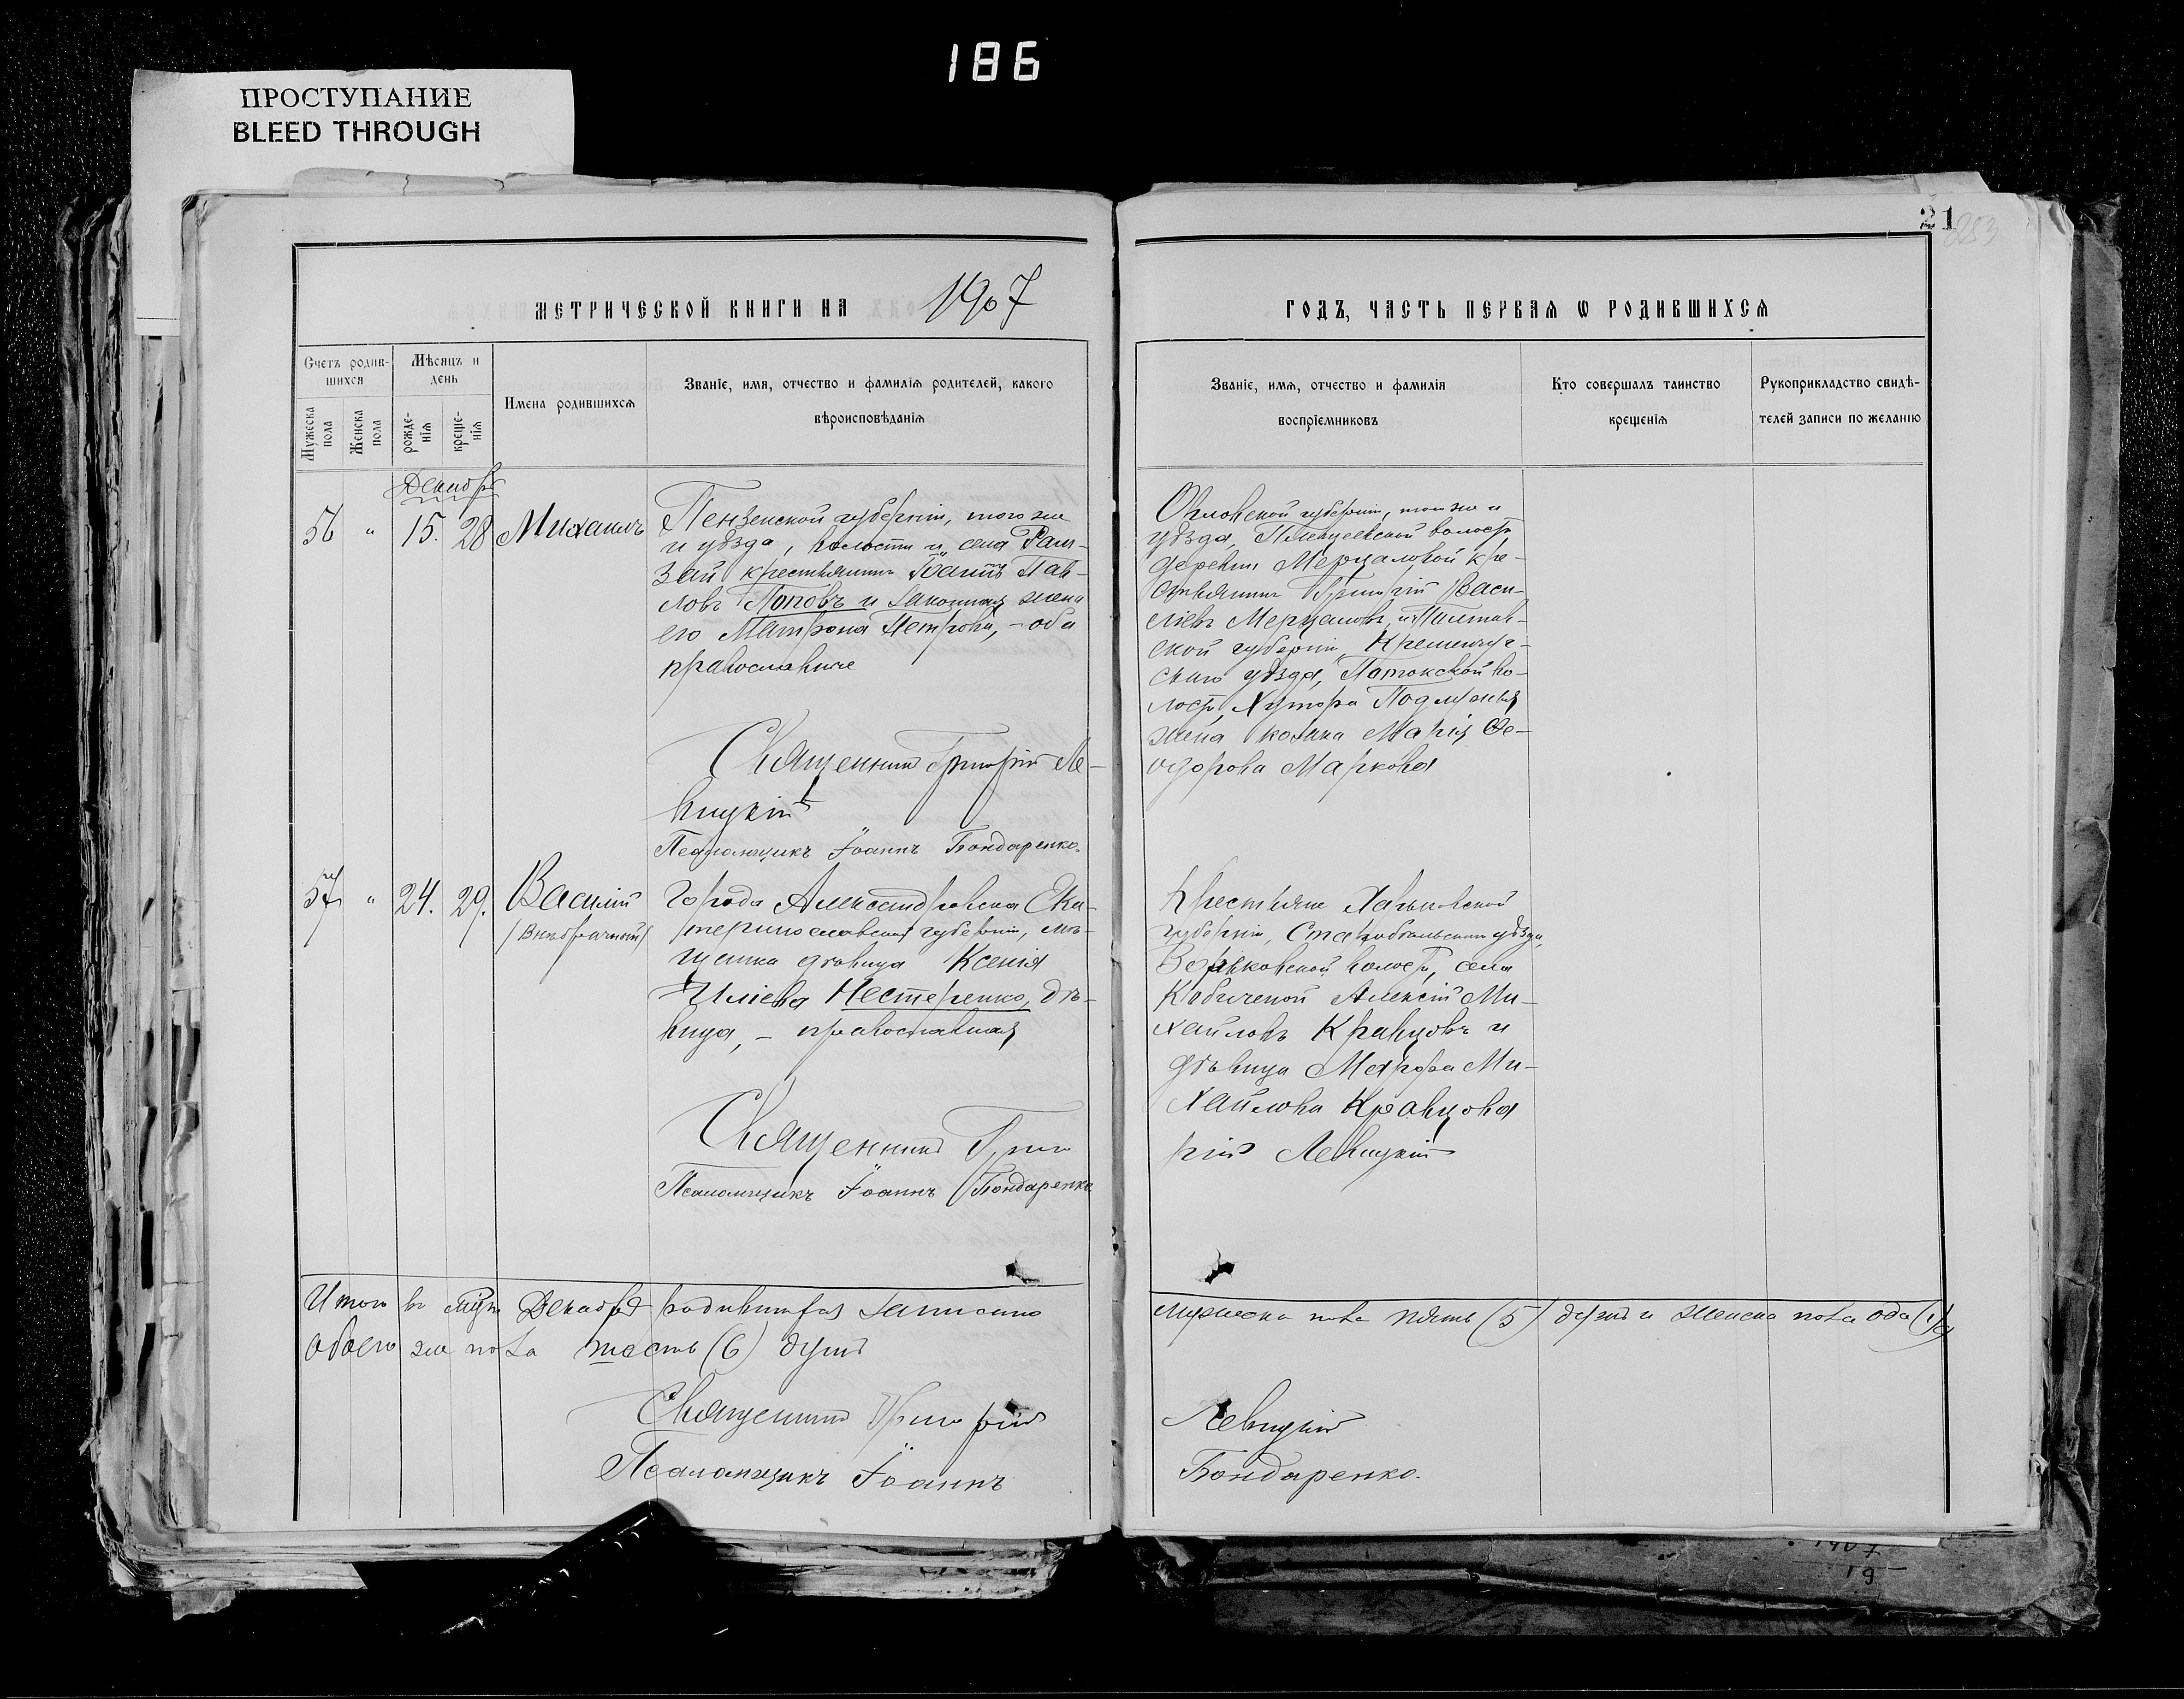 186
ПРОСТУПАНИЕ
BLEED THROUGH
21
МЕТРИЧЕСКОЙ КНИГИ НА 1907
ГОДЪ, ЧАСТЬ ПЕРВАЯ Ѡ РОДИВШИХСЯ
Счетъ родив-
шихся
Мужеска
пола
Женска
пола
Мѣсяцъ и
день
рожде-
нія
креще-
нія
Имена родившихся
Званіе, имя, отчество и фамилія родителей, какого
вѣроисповѣданія
Званіе, имя, отчество и фамилія
воспріемниковъ
Кто совершалъ таинство
крещенія
Рукоприкладство свидѣ-
телей записи по желанію
Декабрь
56 " 15. 28 Михаилъ
Пензенской губерніи, того же
и уѣзда, волости и села Рам-
зай крестьянинъ Іоаннъ Пав-
ловъ Поповъ и законная жена
его Матрона Петрова, - оба
православные
Священникъ Григорій Ле-
вицкій
Псаломщикъ Іоаннъ Бондаренко.
губерніи, того же и
уѣзда, волости
деревни Мерцаловой кре-
стьянинъ Григорій Васи-
ліевъ Мерцаловъ и Полтав-
ской губерніи, Кременчуг-
скаго уѣзда, Потокской во-
лости, Хутора
жена козака Марія Ѳе-
одорова Маркова
57 " 24. 29. Василій
(Внѣбрачный)
Города Александровска Ека-
теринославской губерніи, мѣ-
щанка дѣвица Ксенія
Иліева Нестеренко, дѣ-
вица, - православная
Священникъ Григо
Псаломщикъ Іоаннъ Бондаренко.
Крестьяне Харьковской
губерніи, Старобѣльскаго уѣзда,
волости, села
Алексій Ми-
хайловъ Кравцовъ и
дѣвица Мавра Ми-
хайлова Кравцова
рій Левицкій
Итого въ мѣсяцѣ Декабрѣ родившихся записано
обоего же пола шесть (6) душъ
мужеска пола пять (5) душъ и женска пола одна (1) д
Священникъ Григорій
Левицкій
Псаломщикъ Іоаннъ
Бондаренко.
1907
19